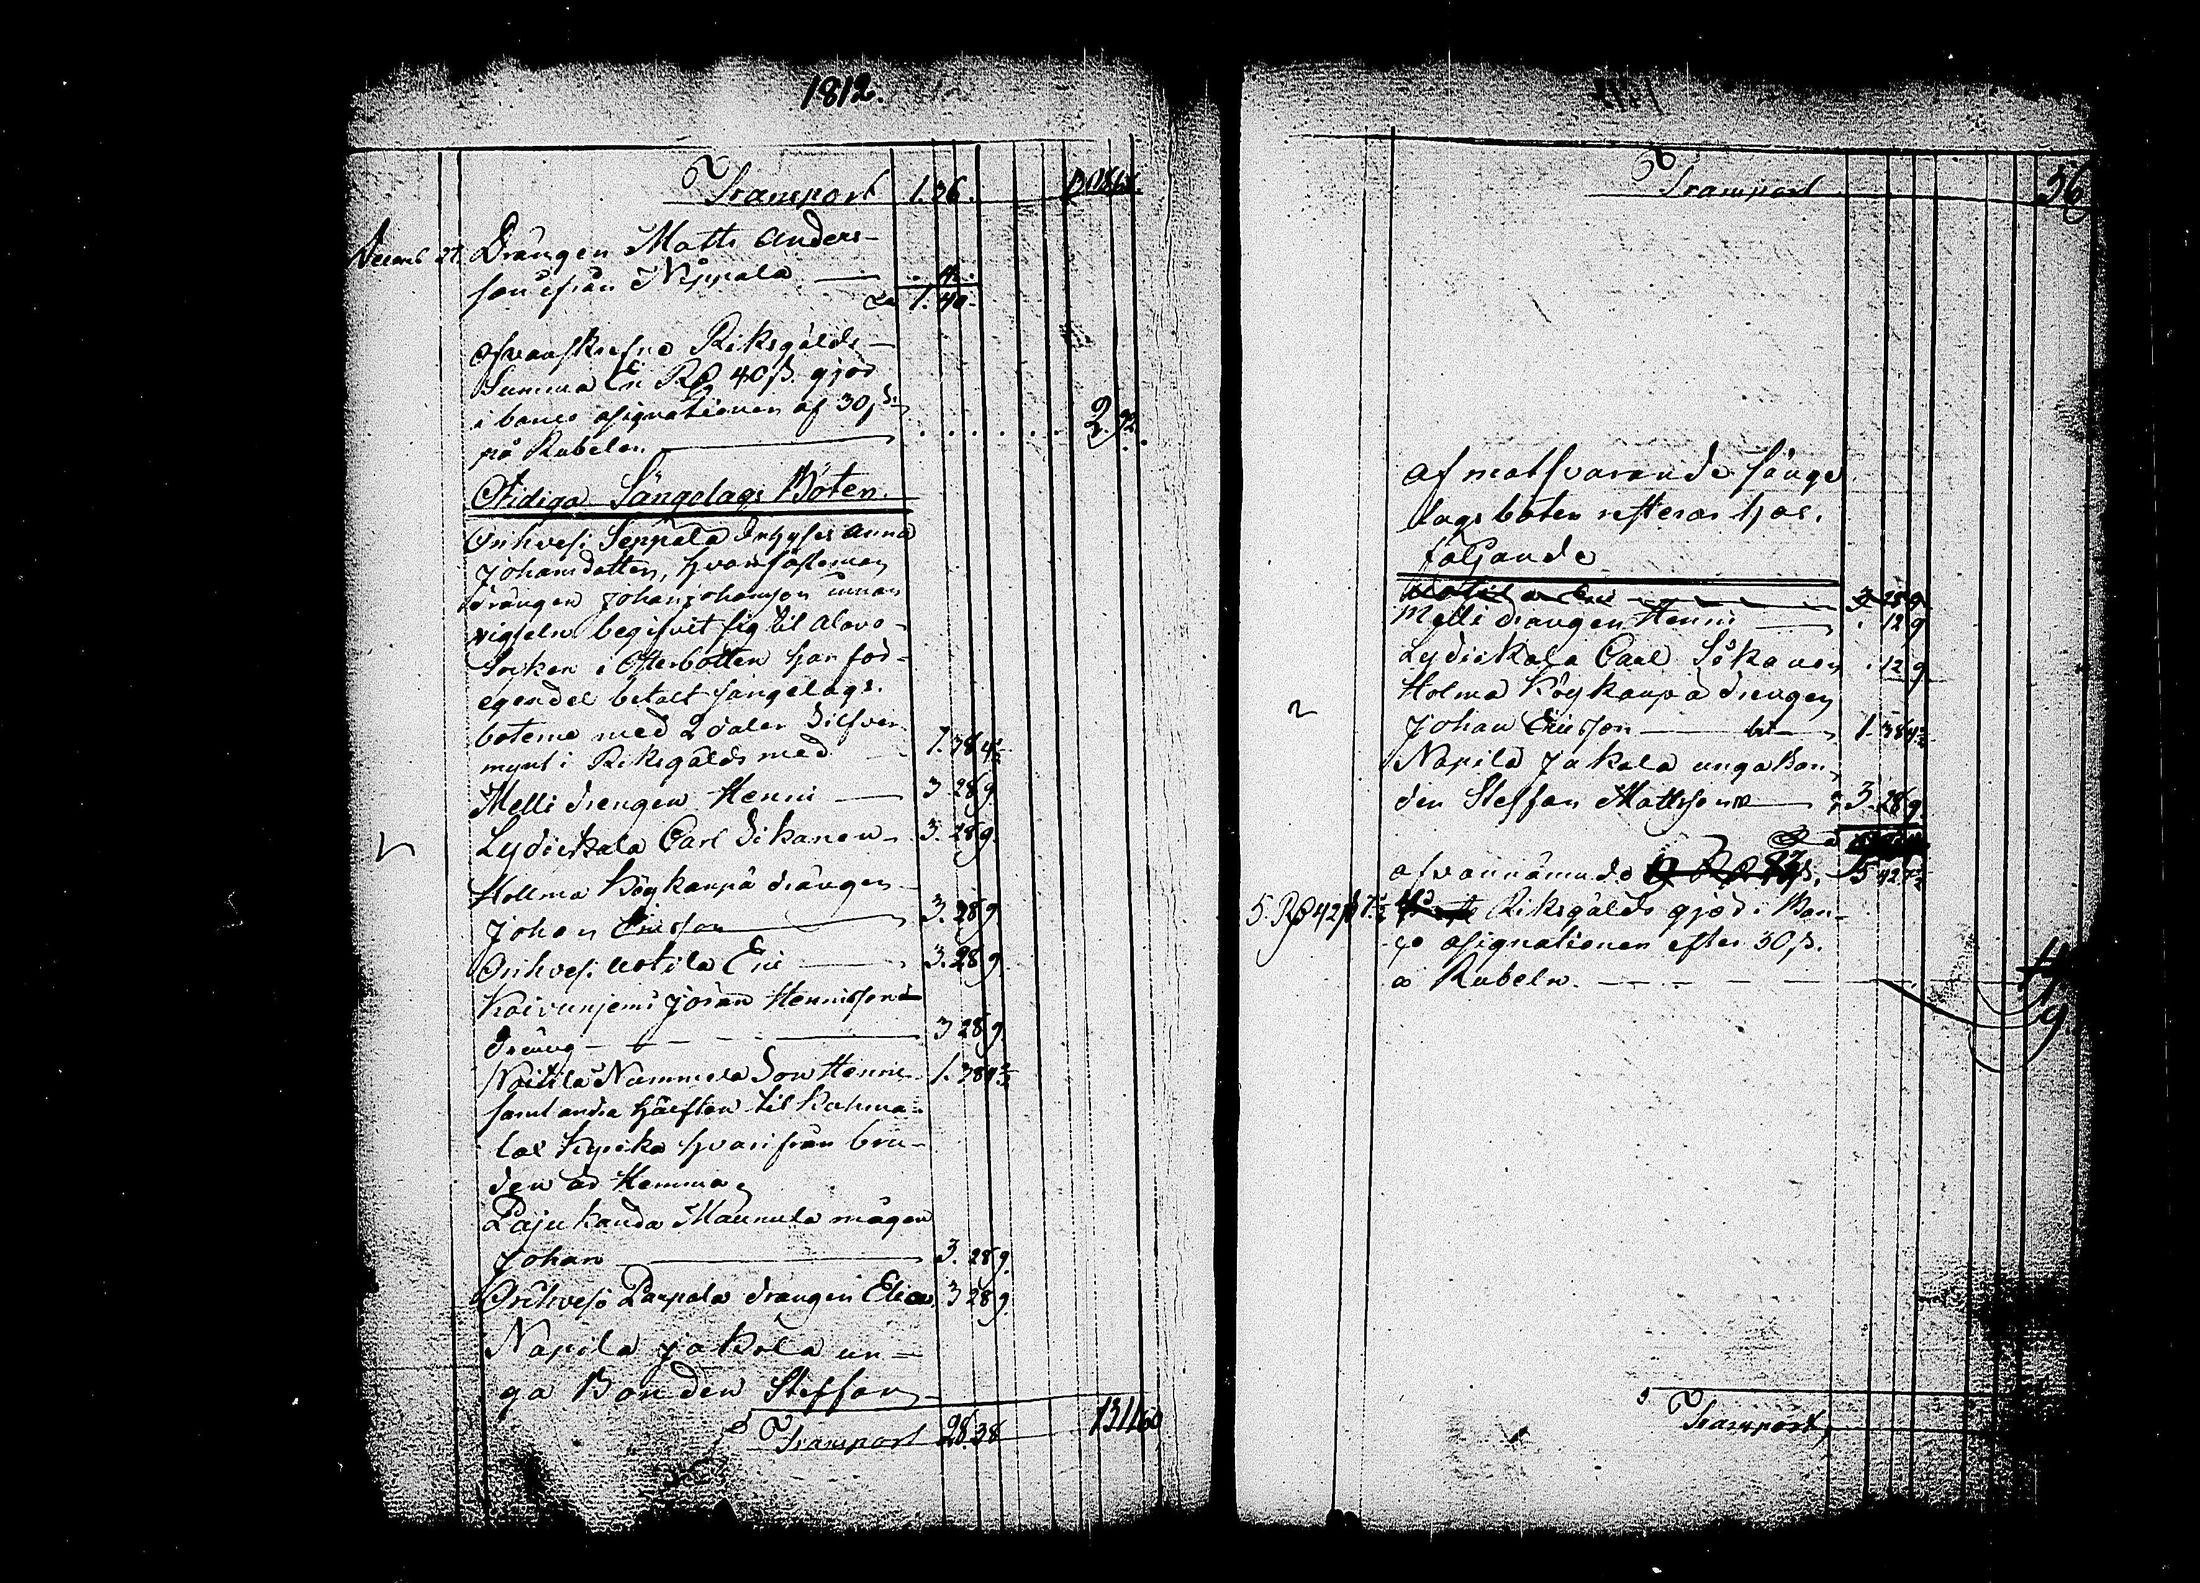 1812.
Transport 1. 36.
Decemb 27. Drängen Matts Anders-
son ifrån Nippala
1. 40.
ofvanskrefne Riksgälds-
Summa En Rd 40 ß. gjör
i banco assignationen af 30 ß.
på Rubelen 2. 92.
Otidiga Sängelags Böten.
Orihvesi Seppälä Inhyses Anna
Johansdotter, hvars fästeman
drängen Johan Johansson innan
vigseln begifvit sig til Alavo
Socken i Österbotten har för
egendel betalt sängelags
boterne med 2 daler Silfver
mynt i Riksgälds med 1. 38 4½
Melli drengen Henric 3. 28 9.
Lydickala Carl Sikanen 3. 28 9.
Hollma Högkanpä drängen
Johan Ericsson 3. 28 9
Orihvesi Uotila Eric 3. 28 9
Koivunjemi Jöran Henricssons
dräng 3 28 9.
Voitila Nummela Son Henric 1. 38 4½
samt andra hälften til Kuhma-
lax Kyrcka hvarifrån bru-
den är Hemma
Pajukanda Maunula mågen
Johan 3. 28 9.
Orihvesi Paupala drängen Elias 3 28 9.
Napila Jakola un-
ga Bonden Steffan
Transport 28. 38 131 60
Transport 56
af motsvarande sänge
lags böter resterar här
följande
3 28 9
Melli drängen Henric 12 9
Lydickala Carl Sikanen 12 9
Holma Högkanpä drengen
Johan Ericsson 1. 38 4½
Napila Jakola unga Bon-
den Steffan Mattsson 3. 28 9.
ofvannämnde 5 42 7½
5. Rd 42 ß 7½ Riksgälds gjör i Ban-
co assignationen efter 30 ß.
a Rubeln. 9
Transport